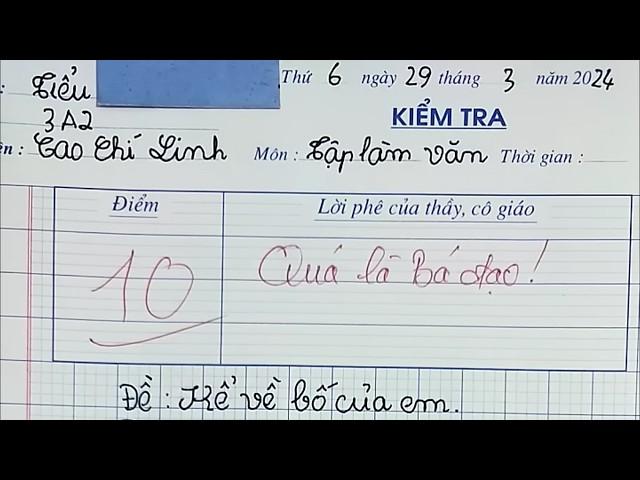 : Tiểu
Thứ 6 ngày 29 tháng 3 năm 2024
3A2
KIỂM TRA
ên : Cao Chí Linh Môn : Tập làm văn Thời gian :
Điểm
Lời phê của thầy, cô giáo
10
Quá là Bá đạo!
Đề : Kể về bố của em.